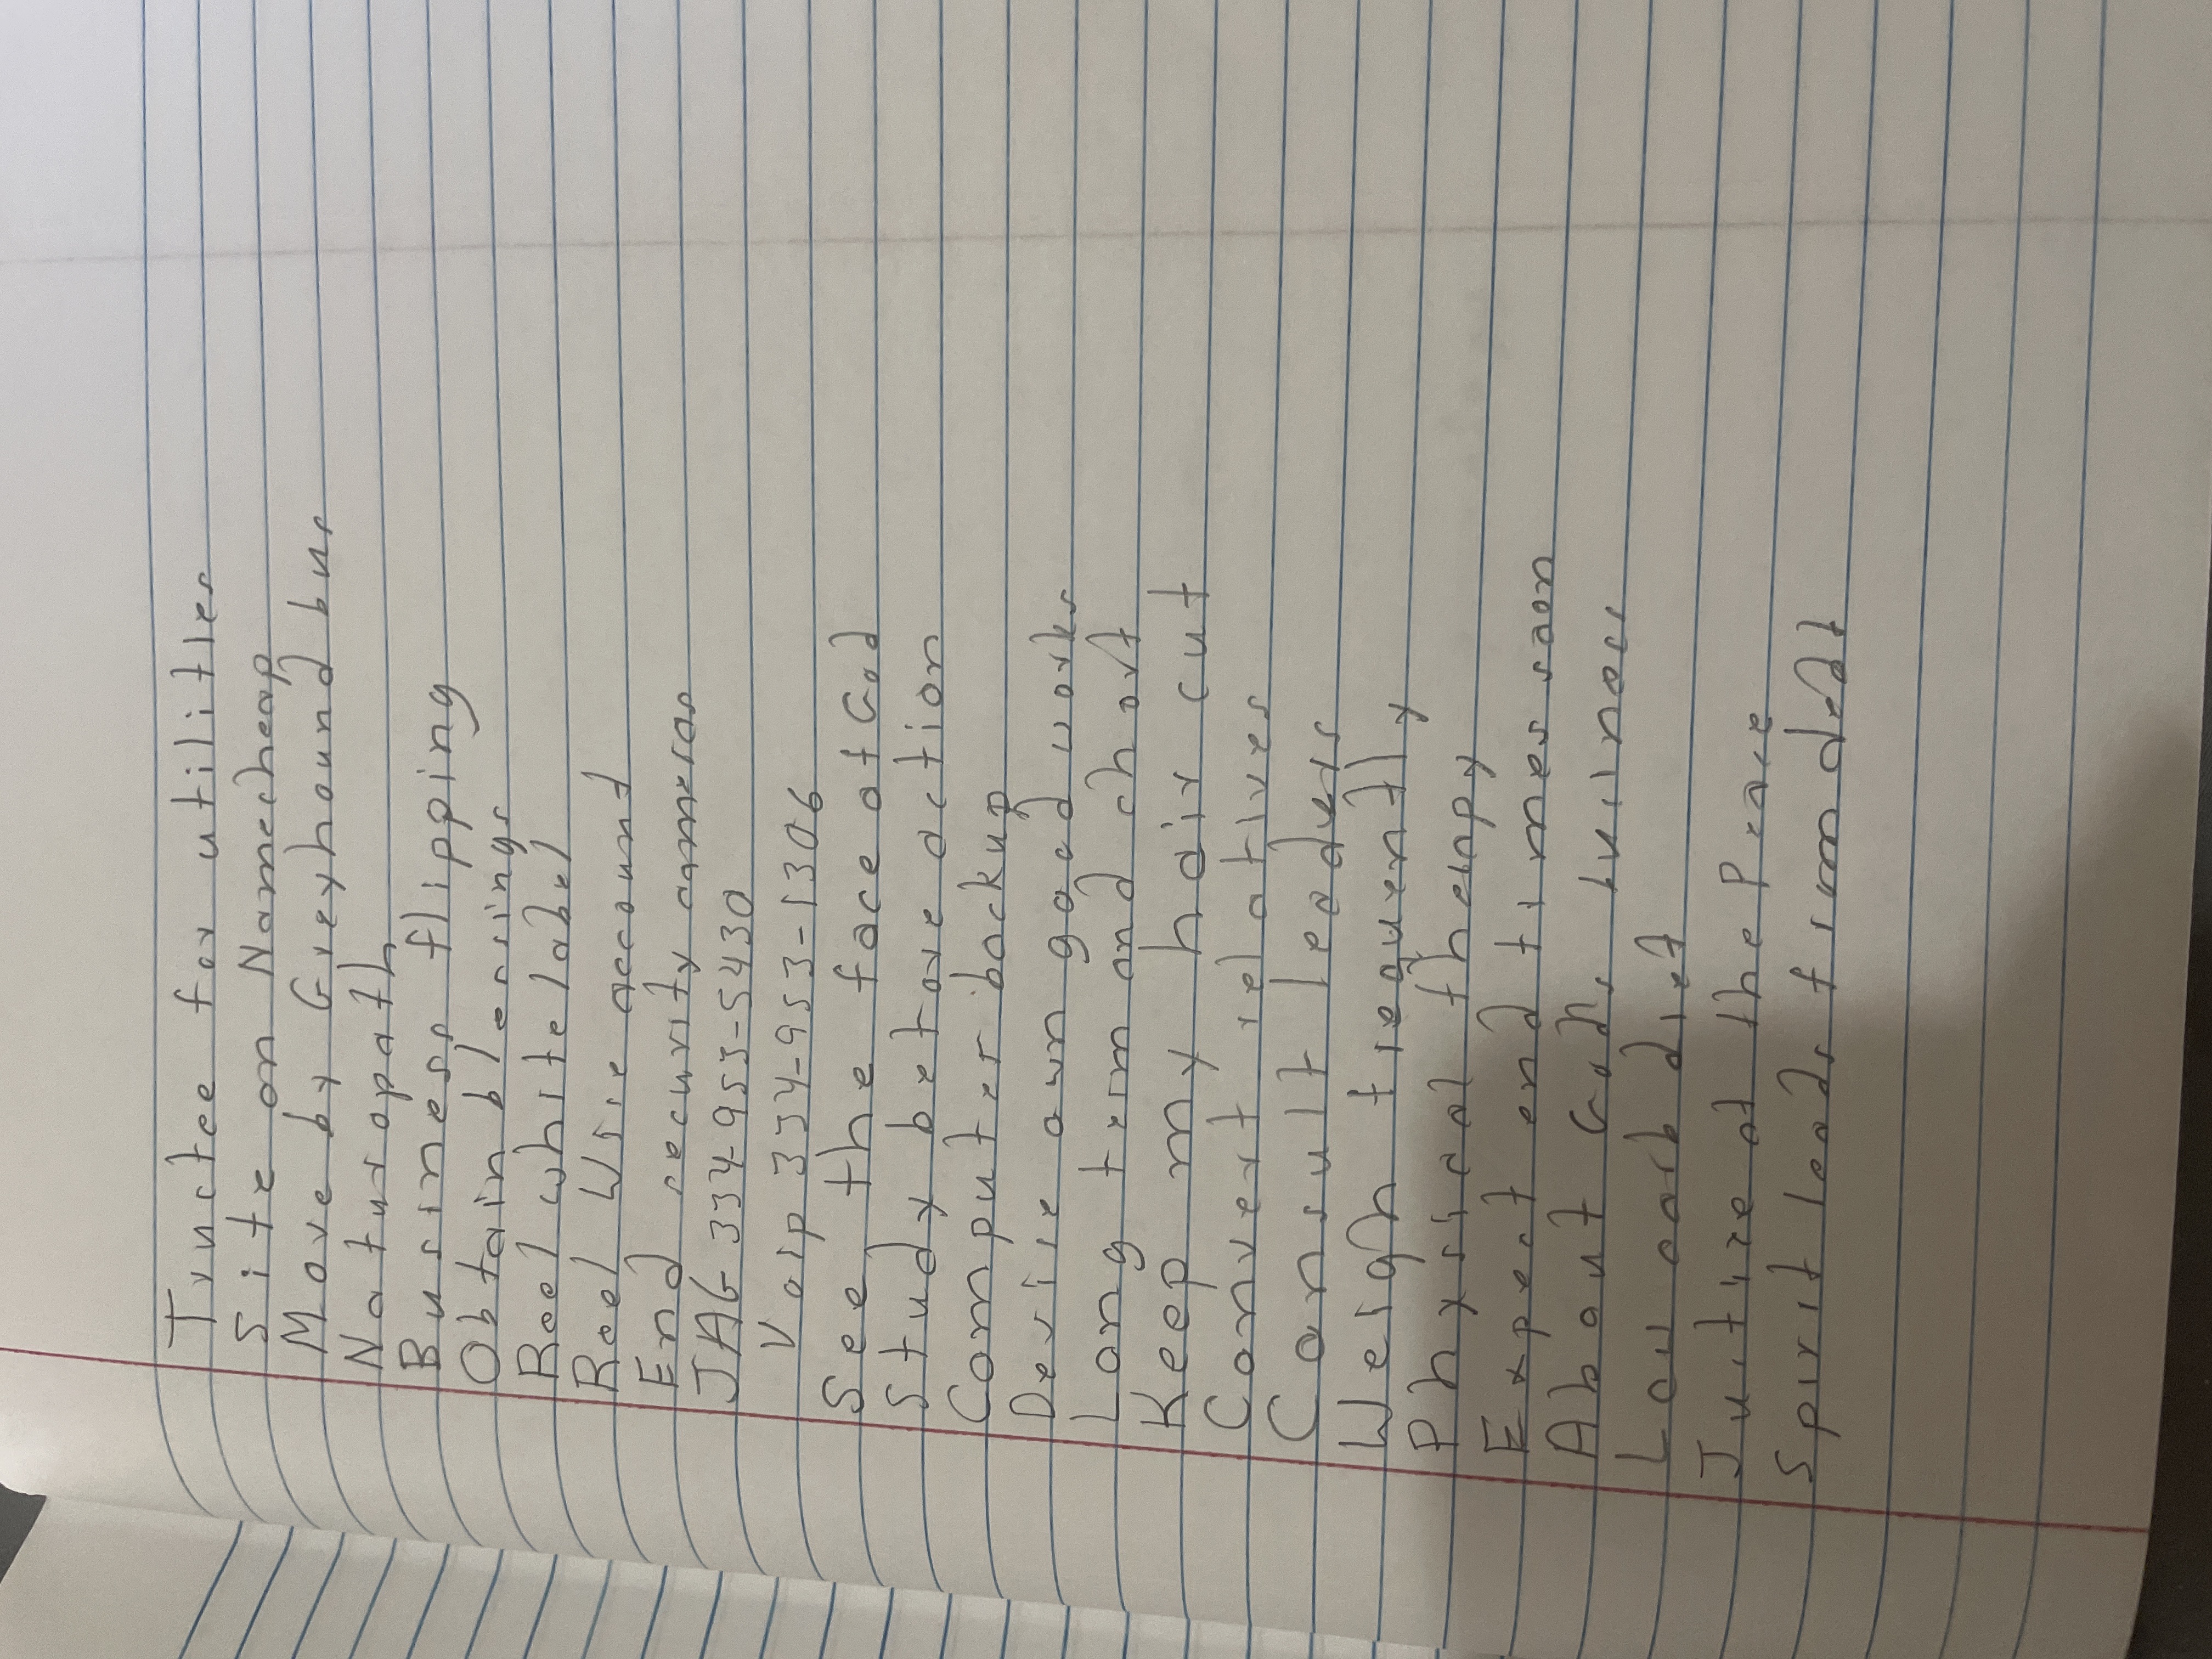 Trustee for utilities
Site on Namecheap
Move by Greyhound bus
Naturopath
Business flipping
Obtain blessings
Roel white label
Roel Wise account
End security cameras
JAG 334-953-5430
Voip 334-953-1306
See the face of God
Study before action
Computer backup
Devise own good works
Long term and short
Keep my hair cut
Convert relatives
Consult leaders
Weigh frequently
Physical therapy
Expect end times soon
About God's business
Low carb diet
Justice of the Peace
Spirit leads from debt